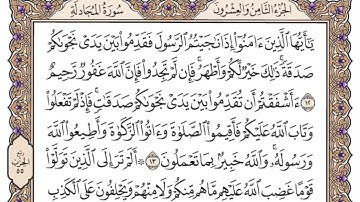 سُورَةُ المُجَادلَةِ
الجُزْءُ الثَّامِنُ وَالعِشْرُونَ
يَٰٓأَيُّهَا ٱلَّذِينَ ءَامَنُوٓا۟ إِذَا نَٰجَيْتُمُ ٱلرَّسُولَ فَقَدِّمُوا۟ بَيْنَ يَدَىْ نَجْوَىٰكُمْ
صَدَقَةً ۚ ذَٰلِكَ خَيْرٌ لَّكُمْ وَأَطْهَرُ ۚ فَإِن لَّمْ تَجِدُوا۟ فَإِنَّ ٱللَّهَ غَفُورٌ رَّحِيمٌ
١٢ ءَأَشْفَقْتُمْ أَن تُقَدِّمُوا۟ بَيْنَ يَدَىْ نَجْوَىٰكُمْ صَدَقَٰتٍ ۚ فَإِذْ لَمْ تَفْعَلُوا۟
وَتَابَ ٱللَّهُ عَلَيْكُمْ فَأَقِيمُوا۟ ٱلصَّلَوٰةَ وَءَاتُوا۟ ٱلزَّكَوٰةَ وَأَطِيعُوا۟ ٱللَّهَ
وَرَسُولَهُۥ ۚ وَٱللَّهُ خَبِيرٌۢ بِمَا تَعْمَلُونَ ١٣ ۞ أَلَمْ تَرَ إِلَى ٱلَّذِينَ تَوَلَّوْا۟
قَوْمًا غَضِبَ ٱللَّهُ عَلَيْهِم مَّا هُم مِّنكُمْ وَلَا مِنْهُمْ وَيَحْلِفُونَ عَلَى ٱلْكَذِبِ
ربع
الحزب
٥٥